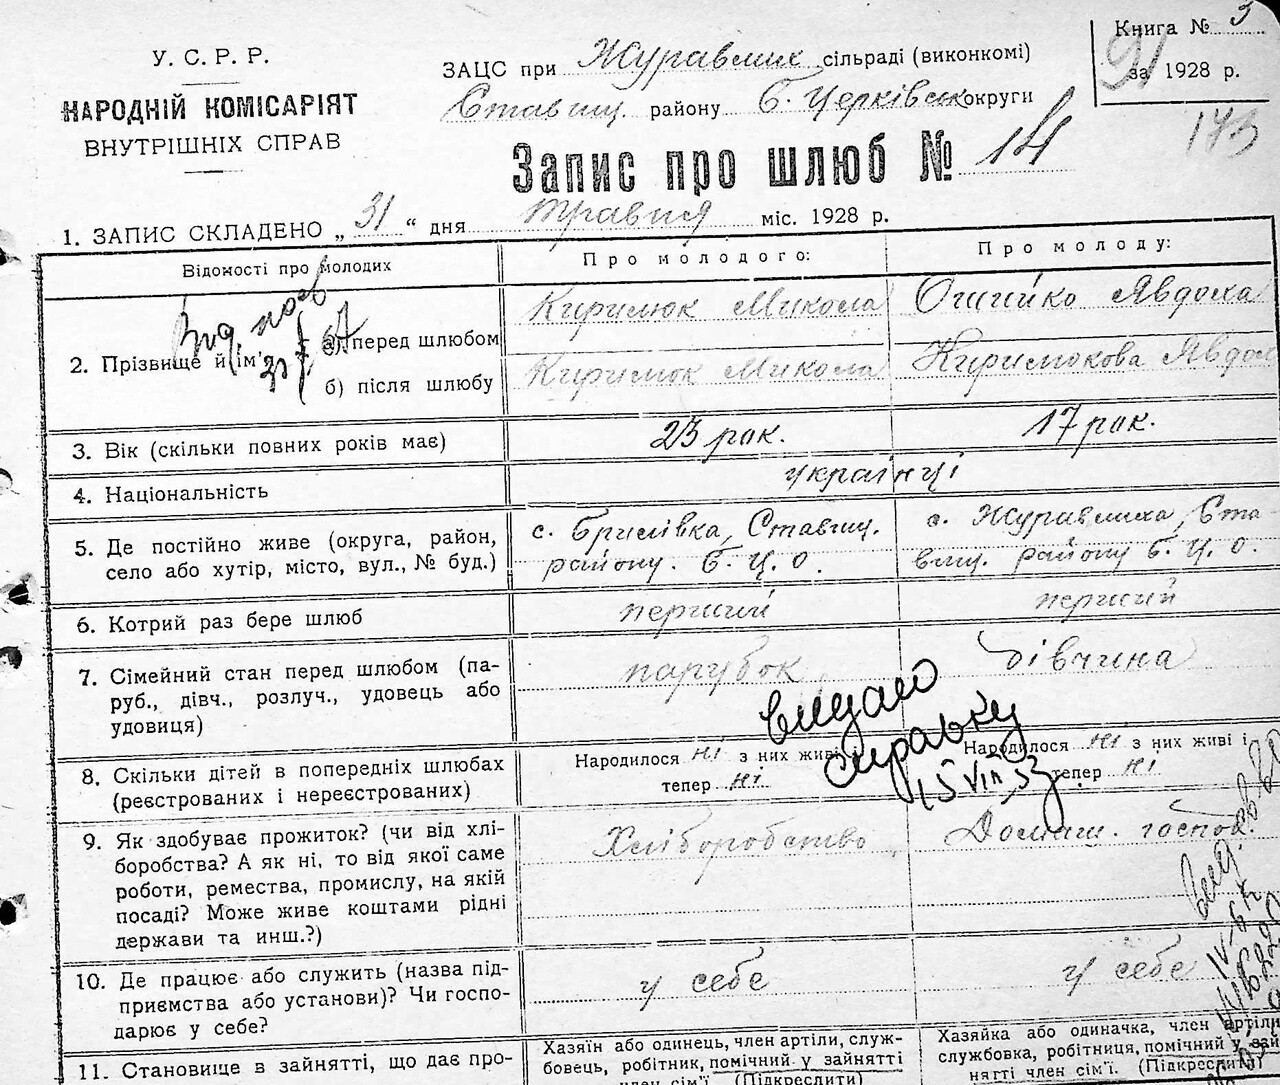 У. С. Р. Р.
НАРОДНІЙ КОМІСАРІЯТ
ВНУТРІШНІХ СПРАВ
ЗАЦС при Журавлих сільраді (виконкомі)
Ставищ. району Б. Церківськ округи
Книга № 3
за 1928 р.
91
173
Запис про шлюб № 14
1. ЗАПИС СКЛАДЕНО „ 31 “ дня травня міс. 1928 р.
Відомості про молодих
Про молодого:
Про молоду:
2. Прізвище й ім'я
а) перед шлюбом
Киримюк Микола
Ошийко Явдоха
б) після шлюбу
Киримюк Микола
Киримюкова Явдох
3. Вік (скільки повних років має)
23 рок.
17 рок.
4. Національність
українці
5. Де постійно живе (округа, район,
село або хутір, місто, вул., № буд.)
с. Брилівка, Ставищ.
району. Б. Ц. О.
с. Журавлиха, Ста-
вищ. району Б. Ц. О.
6. Котрий раз бере шлюб
перший
перший
7. Сімейний стан перед шлюбом (па-
руб., дівч., розлуч., удовець або
удовиця)
парубок
дівчина
видано
справку
15 VIII 53
8. Скільки дітей в попередніх шлюбах
(реєстрованих і нереєстрованих)
Народилося ні з них живі і
тепер ні
Народилося ні з них живі і
тепер ні
9. Як здобуває прожиток? (чи від хлі-
боробства? А як ні, то від якої саме
роботи, ремества, промислу, на якій
посаді? Може живе коштами рідні
держави та инш.?)
Хліборобство
Домаш. господ.
10. Де працює або служить (назва під-
приємства або установи)? Чи госпо-
дарює у себе?
у себе
у себе
11. Становище в зайнятті, що дає про-
Хазяїн або одинець, член артіли, служ-
бовець, робітник, помічний у зайнятті
член сім'ї. (Підкреслити)
Хазяйка або одиначка, член артіли
службовка, робітниця, помічний у зай-
нятті член сім'ї. (Підкреслити)